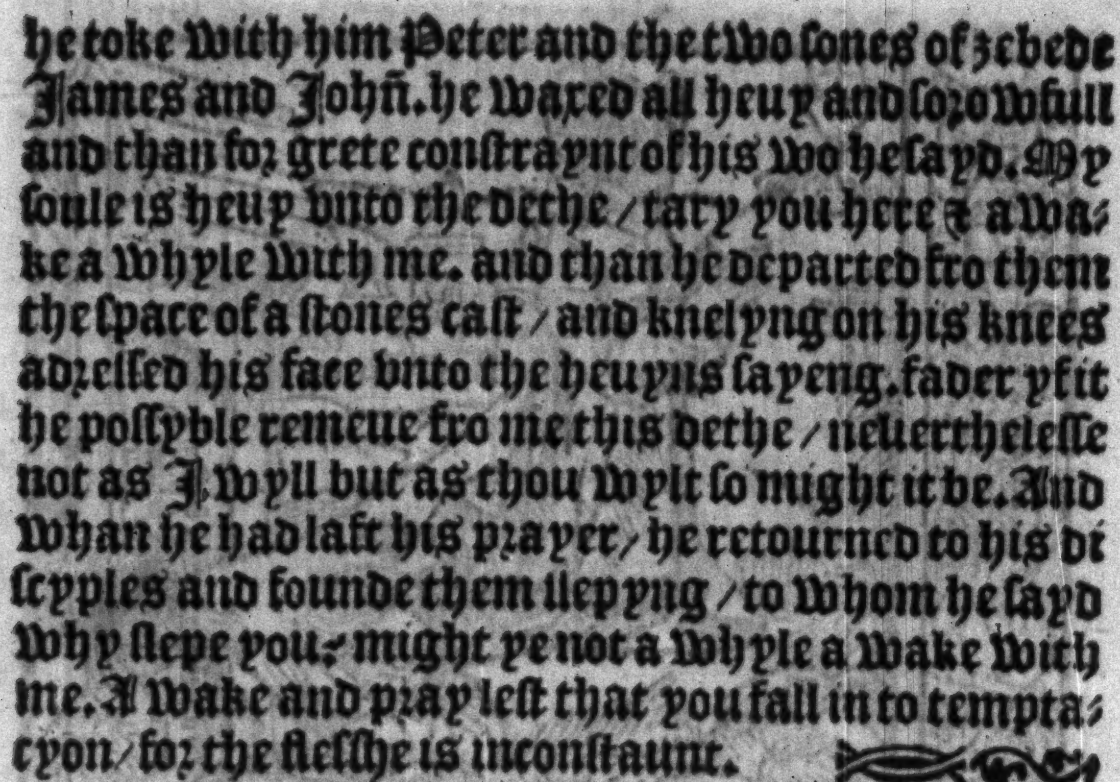 he toke with him Peter and the two ſones of zebede
James and Johñ. he waxed all heuy and ſoꝛowfull
and than foꝛ grete conſtraynt of his wo he ſayd. My
ſoule is heuy vnto the dethe / tary you here ⁊ a wa⸗
ke a whyle with me. and than he departed fro them
the ſpace of a ſtones caſt / and knelyng on his knees
adꝛeſſed his face vnto the heuyns ſayeng. fader yf it
be poſſyble remeue fro me this dethe / neuertheleſſe
not as J wyll but as thou wylt ſo might it be. And
whan he had laft his pꝛayer / he retourned to his di
ſcyples and founde them ſlepyng / to whom he ſayd
why ſlepe you: might ye not a whyle a wake with
me. A wake and pꝛay leſt that you fall in to tempta⸗
cyon / foꝛ the fleſſhe is inconſtaunt.